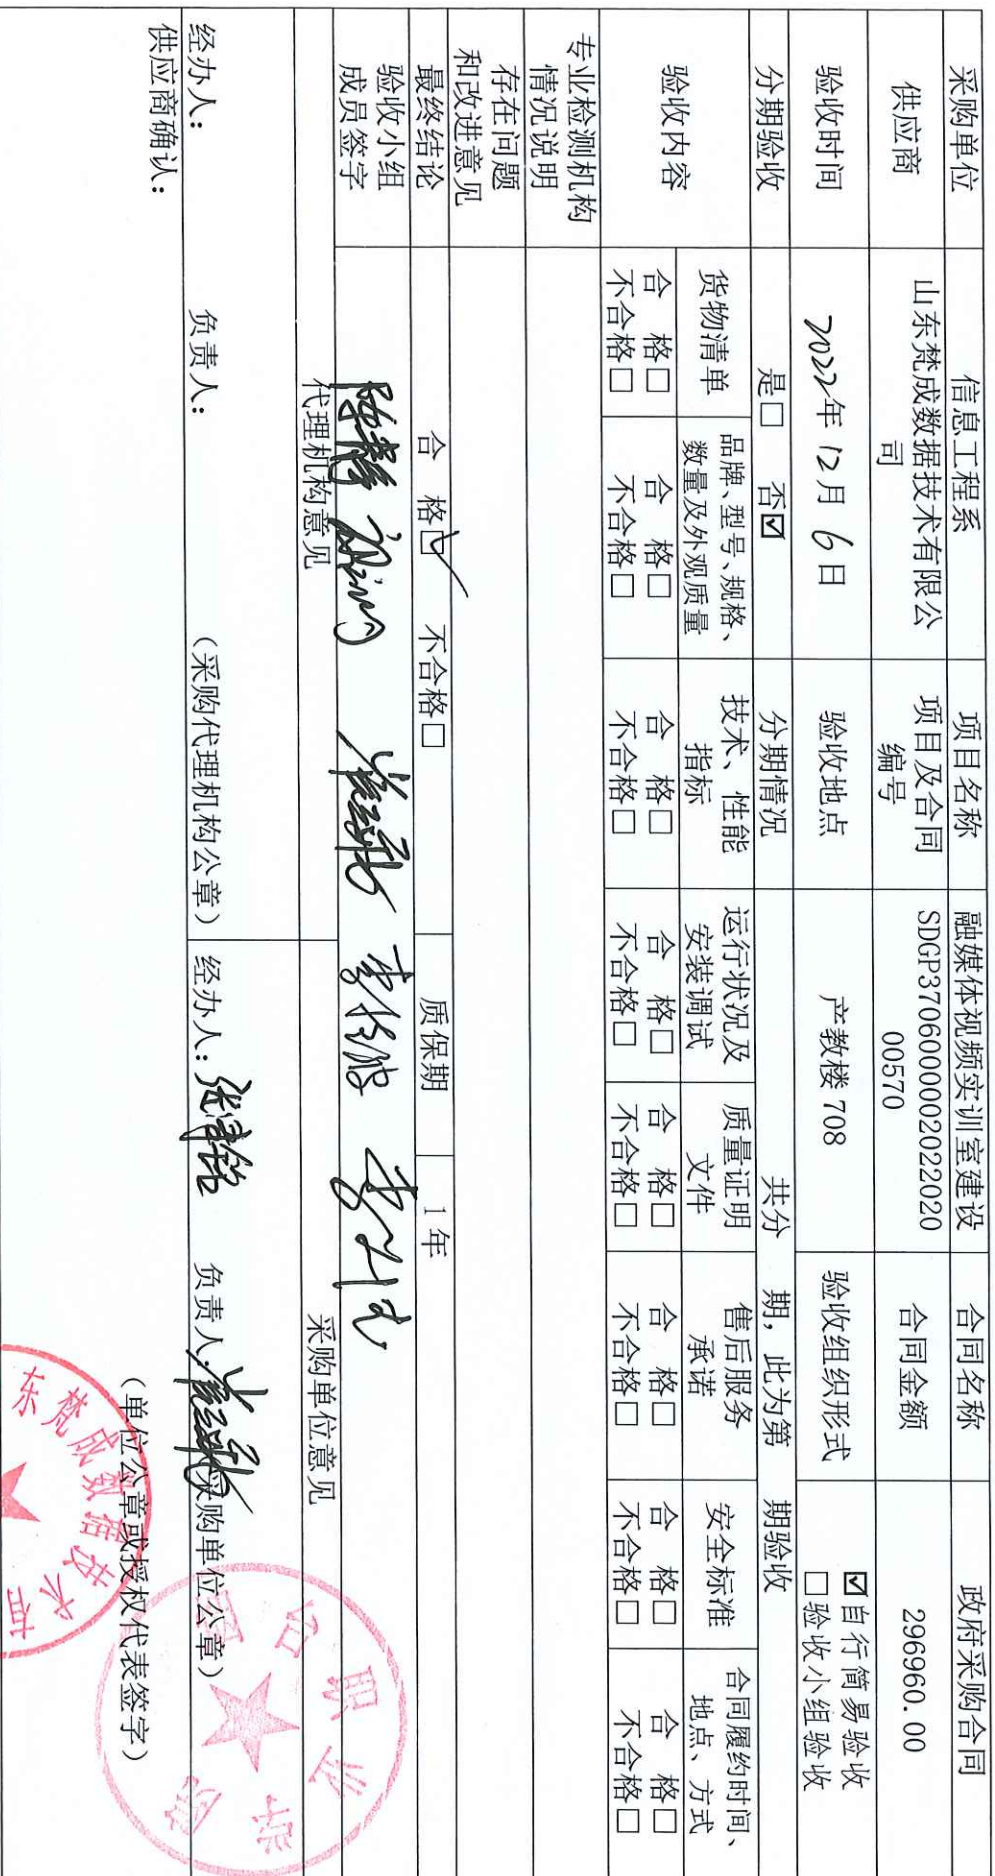 采购单位 信息工程系 项目名称 融媒体视频实训室建设 合同名称 政府采购合同
供应商 山东梵成数据技术有限公
司 项目及合同
编号 SDGP370600000202202000570 合同金额 296960.00
验收时间 2022年 12月 6日 验收地点 产教楼 708 验收组织形式 ☑自行简易验收
□验收小组验收
分期验收 是□ 否☑ 分期情况 共分 期，此为第 期验收
验收内容
货物清单 品牌、型号、规格、
数量及外观质量 技术、性能
指标 运行状况及
安装调试 质量证明
文件 售后服务
承诺 安全标准 合同履约时间、
地点、方式
合 格□ 合 格□ 合 格□ 合 格□ 合 格□ 合 格□ 合 格□ 合 格□
不合格□ 不合格□ 不合格□ 不合格□ 不合格□ 不合格□ 不合格□ 不合格□
专业检测机构
情况说明
存在问题
和改进意见
最终结论 合 格☑ 不合格□ 质保期 1年
验收小组
成员签字
代理机构意见 采购单位意见
经办人： 负责人： （采购代理机构公章） 经办人： 负责人： 采购单位公章）
供应商确认： （单位公章或授权代表签字）
东梵成数据技术
台职业学院